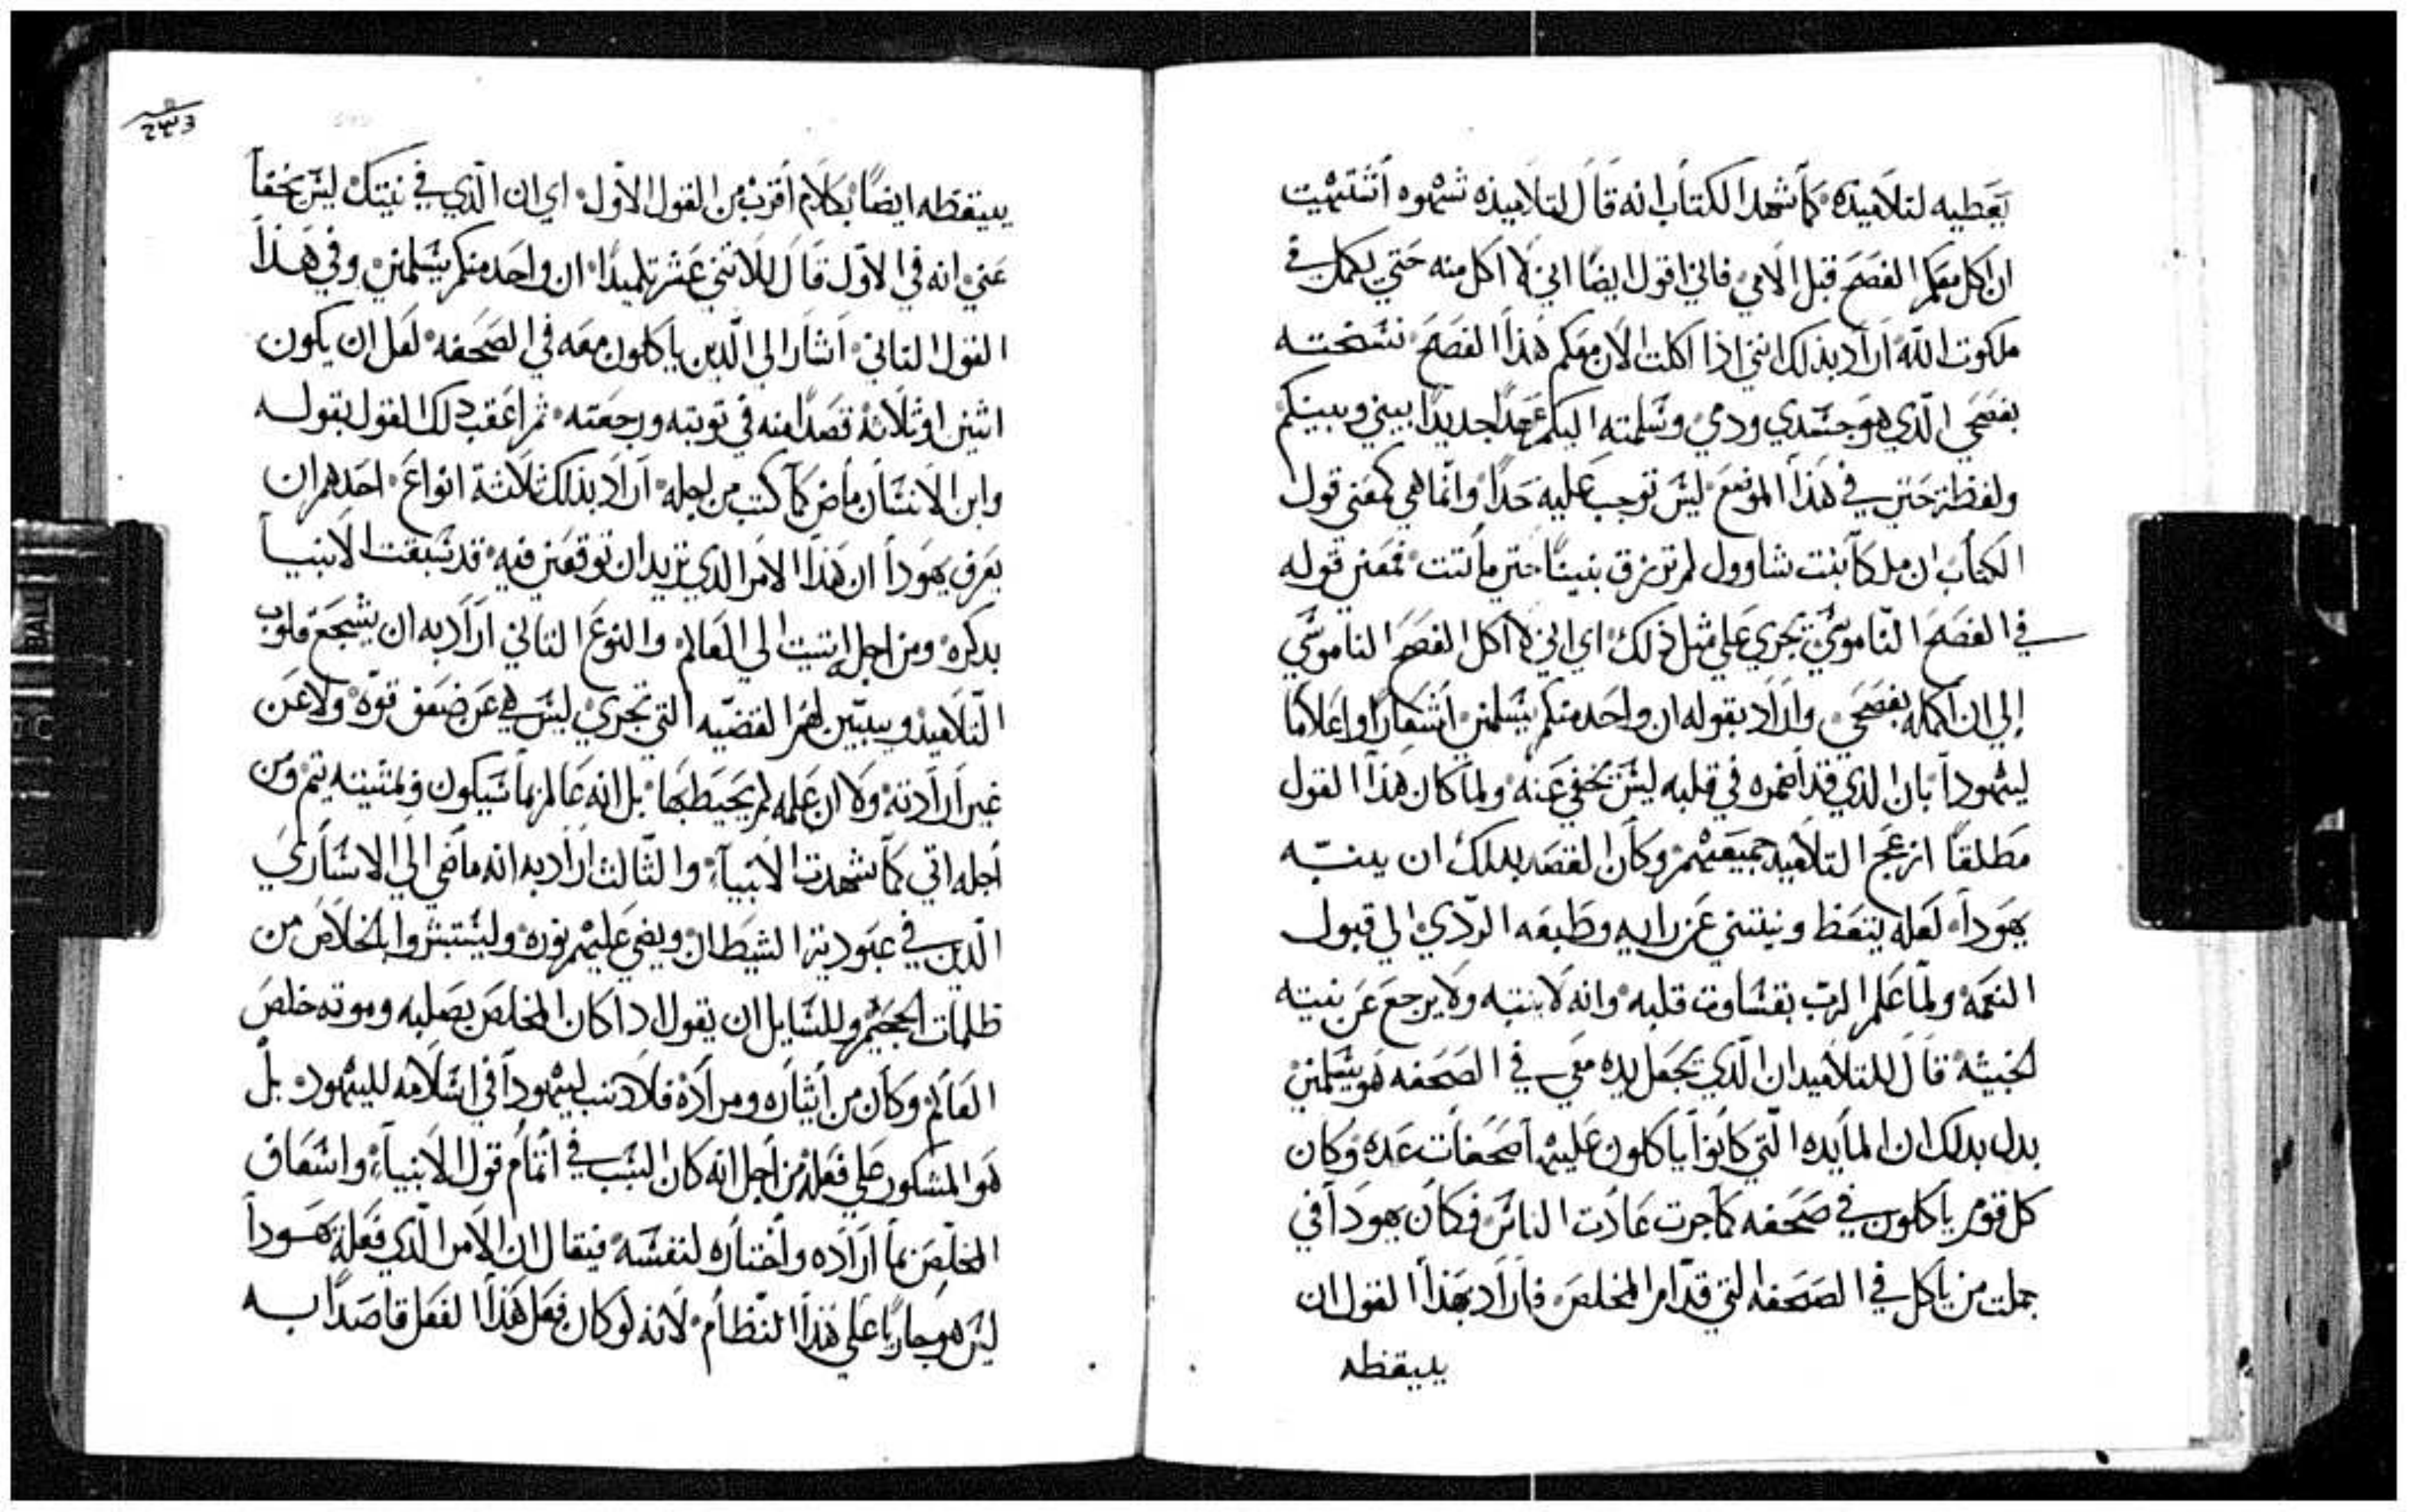 يعطيه لتلاميذه كما شهد الكتاب انه قال لتلاميذه شهوه اشتهيت
ان اكل معكم الفصح قبل الامي فاني اقول ايضا اني لا اكل منه حتي يكمل في
ملكوت الله اراد بذلك انني اذا اكلت الان معكم هذا الفصح نسخته
بفصحي الذي هو جسدي ودمي وسلمته اليكم عهدا جديدا بيني وبينكم
ولفظة حتي في هذا الموضع ليس توجب عليه حدا وانما هي كمعني قول
الكتاب ان ملكا بنت شاوول لم ترزق بنينا حتي ماتت فمعني قوله
في الفصح الناموسي تجري علي مثل ذلك اي اني لا اكل الفصح الناموسي
إلي ان اكمله بفصحي واراد بقوله ان واحد منكم يسلمني اشعارا واعلاما
ليهودا بان الذي قد اضمره في قلبه ليس يخفي عنه ولما كان هذا القول
مطلقا ازعج التلاميد جميعهم وكان القصد بدلك ان ينبه
يهودا لعله يتعظ وينتني عن رايه وطبعه الردي الي قبول
النعمه ولما علم الرب بقساوت قلبه وانه لا ينتبه ولا يرجع عن نيته
الخبيثه قال للتلاميد ان الدي يجعل يده معي في الصحفه هو يسلمني
يدل بدلك ان المايده التي كانوا ياكلون عليها صحفات عده وكان
كل قوم ياكلون في صحفه كما جرت عادت الناس فكان يهودا في
جملت من ياكل في الصحفه التي قدام المخلص فاراد بهذا القول ان
ييقظه
٢٣٣
ييقظه ايضا بكلام أقرب من القول الاول اي ان الذي في نيتك ليس يخفا
عني انه في الاول قال للاثني عشر تلميدا ان واحد منكم يسلمني وفي هذا
القول التاني اشار الي الدين ياكلون معه في الصحفه لعل ان يكون
اثنين او ثلاثه قصدا منه في توبته ورجعته ثم اعقب دلك القول بقوله
وابن الانسان ماض كما كتب من اجله اراد بذلك ثلاثة انواع احدهم ان
يعرف يهودا ان هذا الامر الدي تريد ان توقعني فيه قد سبقت الانبيا
بدكره ومن اجل اتيت الي العالم والنوع التاني اراد به ان يشجع قلوب
التلاميد ويبين لهم القضيه التي تجري ليس هي عن ضعف قوه ولا عن
غير ارادته ولا ان علمه لم يحيط بها بل انه عالم بما سيكون ولمشيته يتم ومن
اجله اتي كما شهدت الانبياء والثالث اراد به انه ماضي الي الاساري
الدين في عبودية الشيطان ويضي عليهم نوره وليستبشروا بالخلاص من
ظلمات الجحيم وللسايل ان يقول ادا كان المخلص بصلبه وموته خلص
العالم وكان من اثاره ومراده فلا دنب ليهودا في اسلامه لليهود بل
هو المشكور علي فعله من اجل انه كان السبب في اتمام قول الانبياء واسعاف
المخلص بما اراده واختاره لنفسه فيقال ان الامر الدي فعله يهودا
ليس هو جاريا علي هذا النظام لانه لو كان فعل هذا الفعل قاصدا به